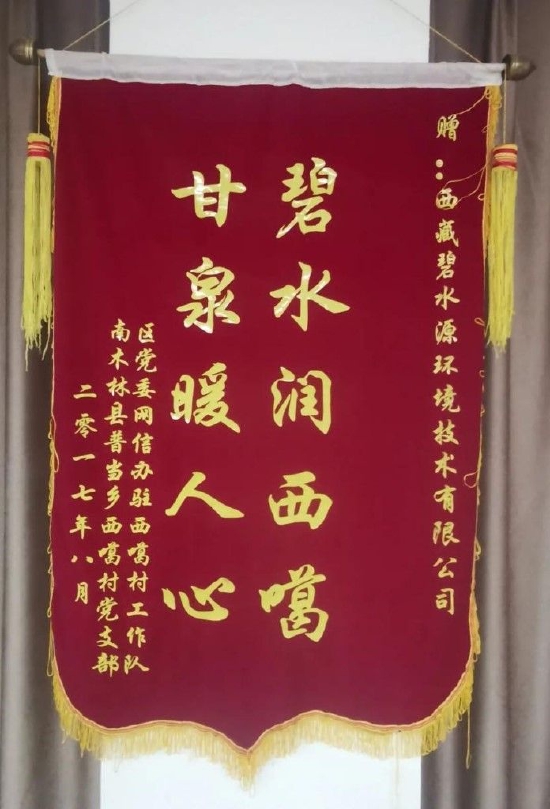 赠：西藏碧水源环境技术有限公司
碧水润西噶
甘泉暖人心
区党委网信办驻西噶村工作队
南木林县普当乡西噶村党支部
二零一七年八月